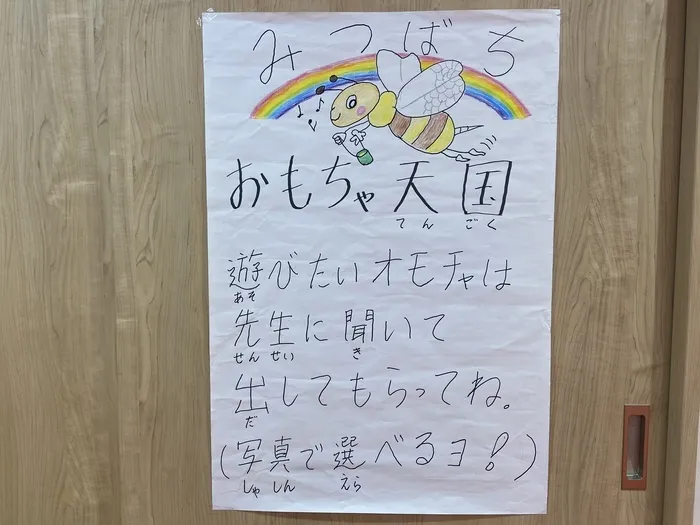 みつばち
おもちゃ天国
てんごく
遊びたいオモチャは
あそ
先生に聞いて
せんせい き
出してもらってね。
だ
(写真で選べるヨ!)
しゃしん えら